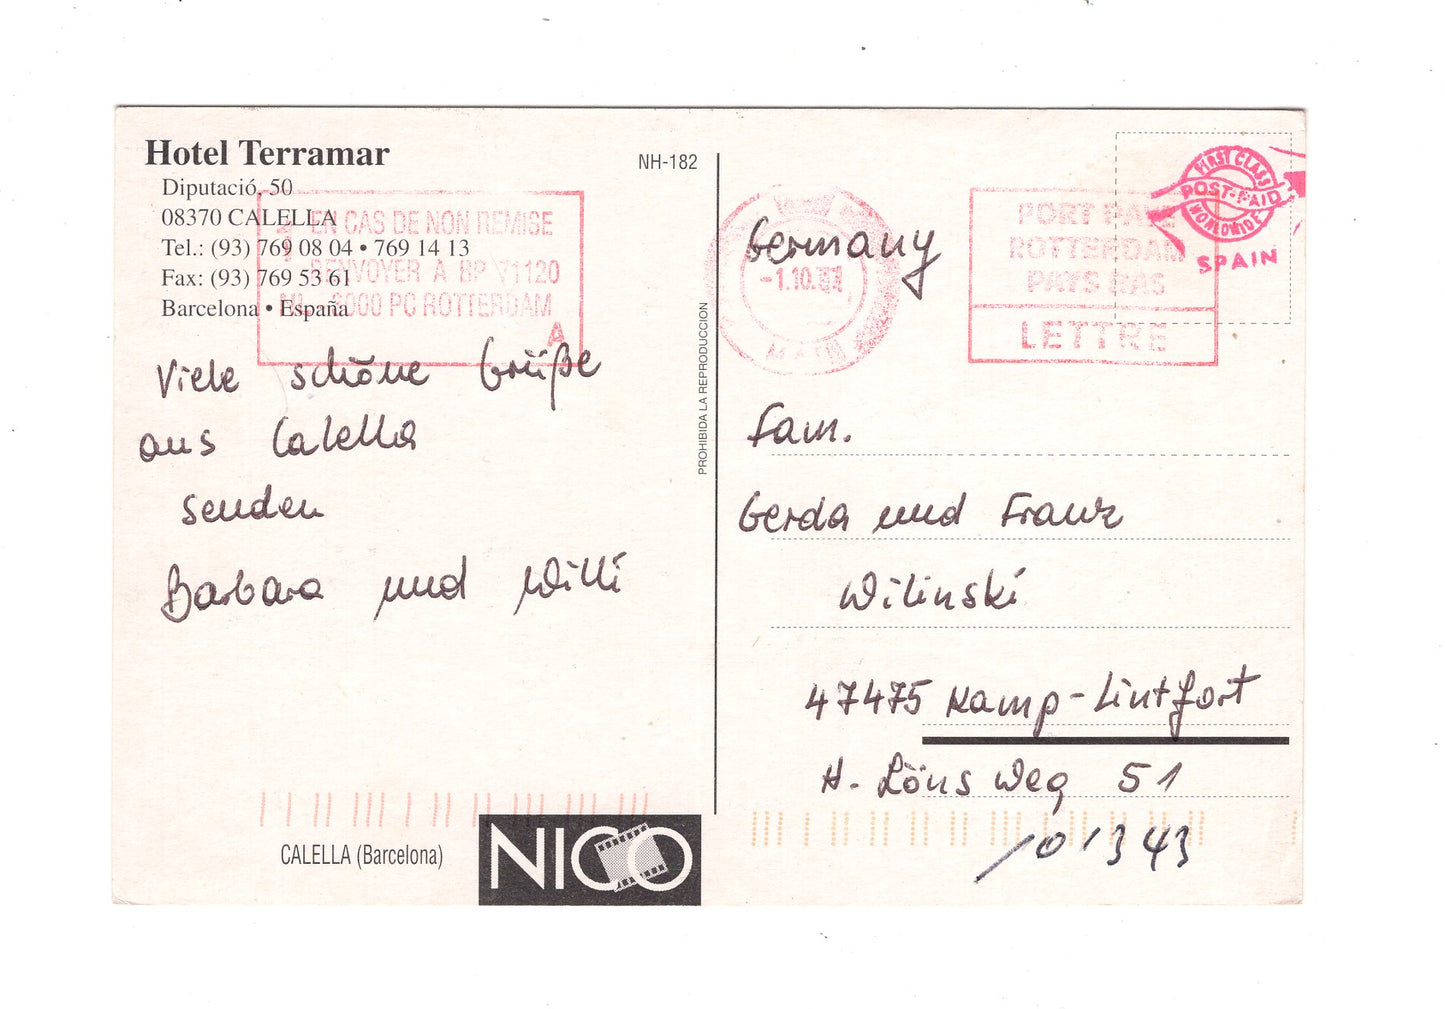 Hotel Terramar
Diputació, 50
08370 CALELLA
Tel.: (93) 769 08 04 • 769 14 13
Fax: (93) 769 53 61
Barcelona • España
NH-182
EN CAS DE NON REMISE
RENVOYER A BP 71120
NL 3000 PC ROTTERDAM
A
Viele schöne Grüße
aus Calella
senden
Barbara und Willi
CALELLA (Barcelona)
NICO
PROHIBIDA LA REPRODUCCION
-1.10.
MATIN
PORT PAYE
ROTTERDAM
PAYS BAS
LETTRE
FIRST CLASS
POST-PAID
WORLDWIDE
SPAIN
Germany
Fam.
Gerda und Franz
Wilinski
47475 Kamp-Lintfort
H. Löns Weg 51
101343